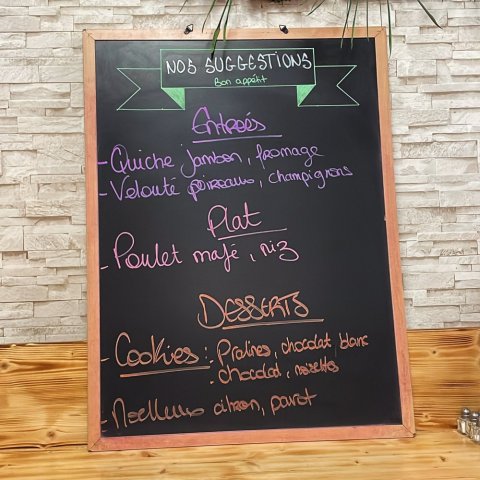 NOS SUGGESTIONS
Bon appétit
Entrées
- Quiche jambon, fromage
- Velouté poireaux, champignons
Plat
- Poulet mafé, riz
DESSERTS
- Cookies : - Pralines, chocolat blanc
- chocolat, noisettes
- Moelleux citron, pavot